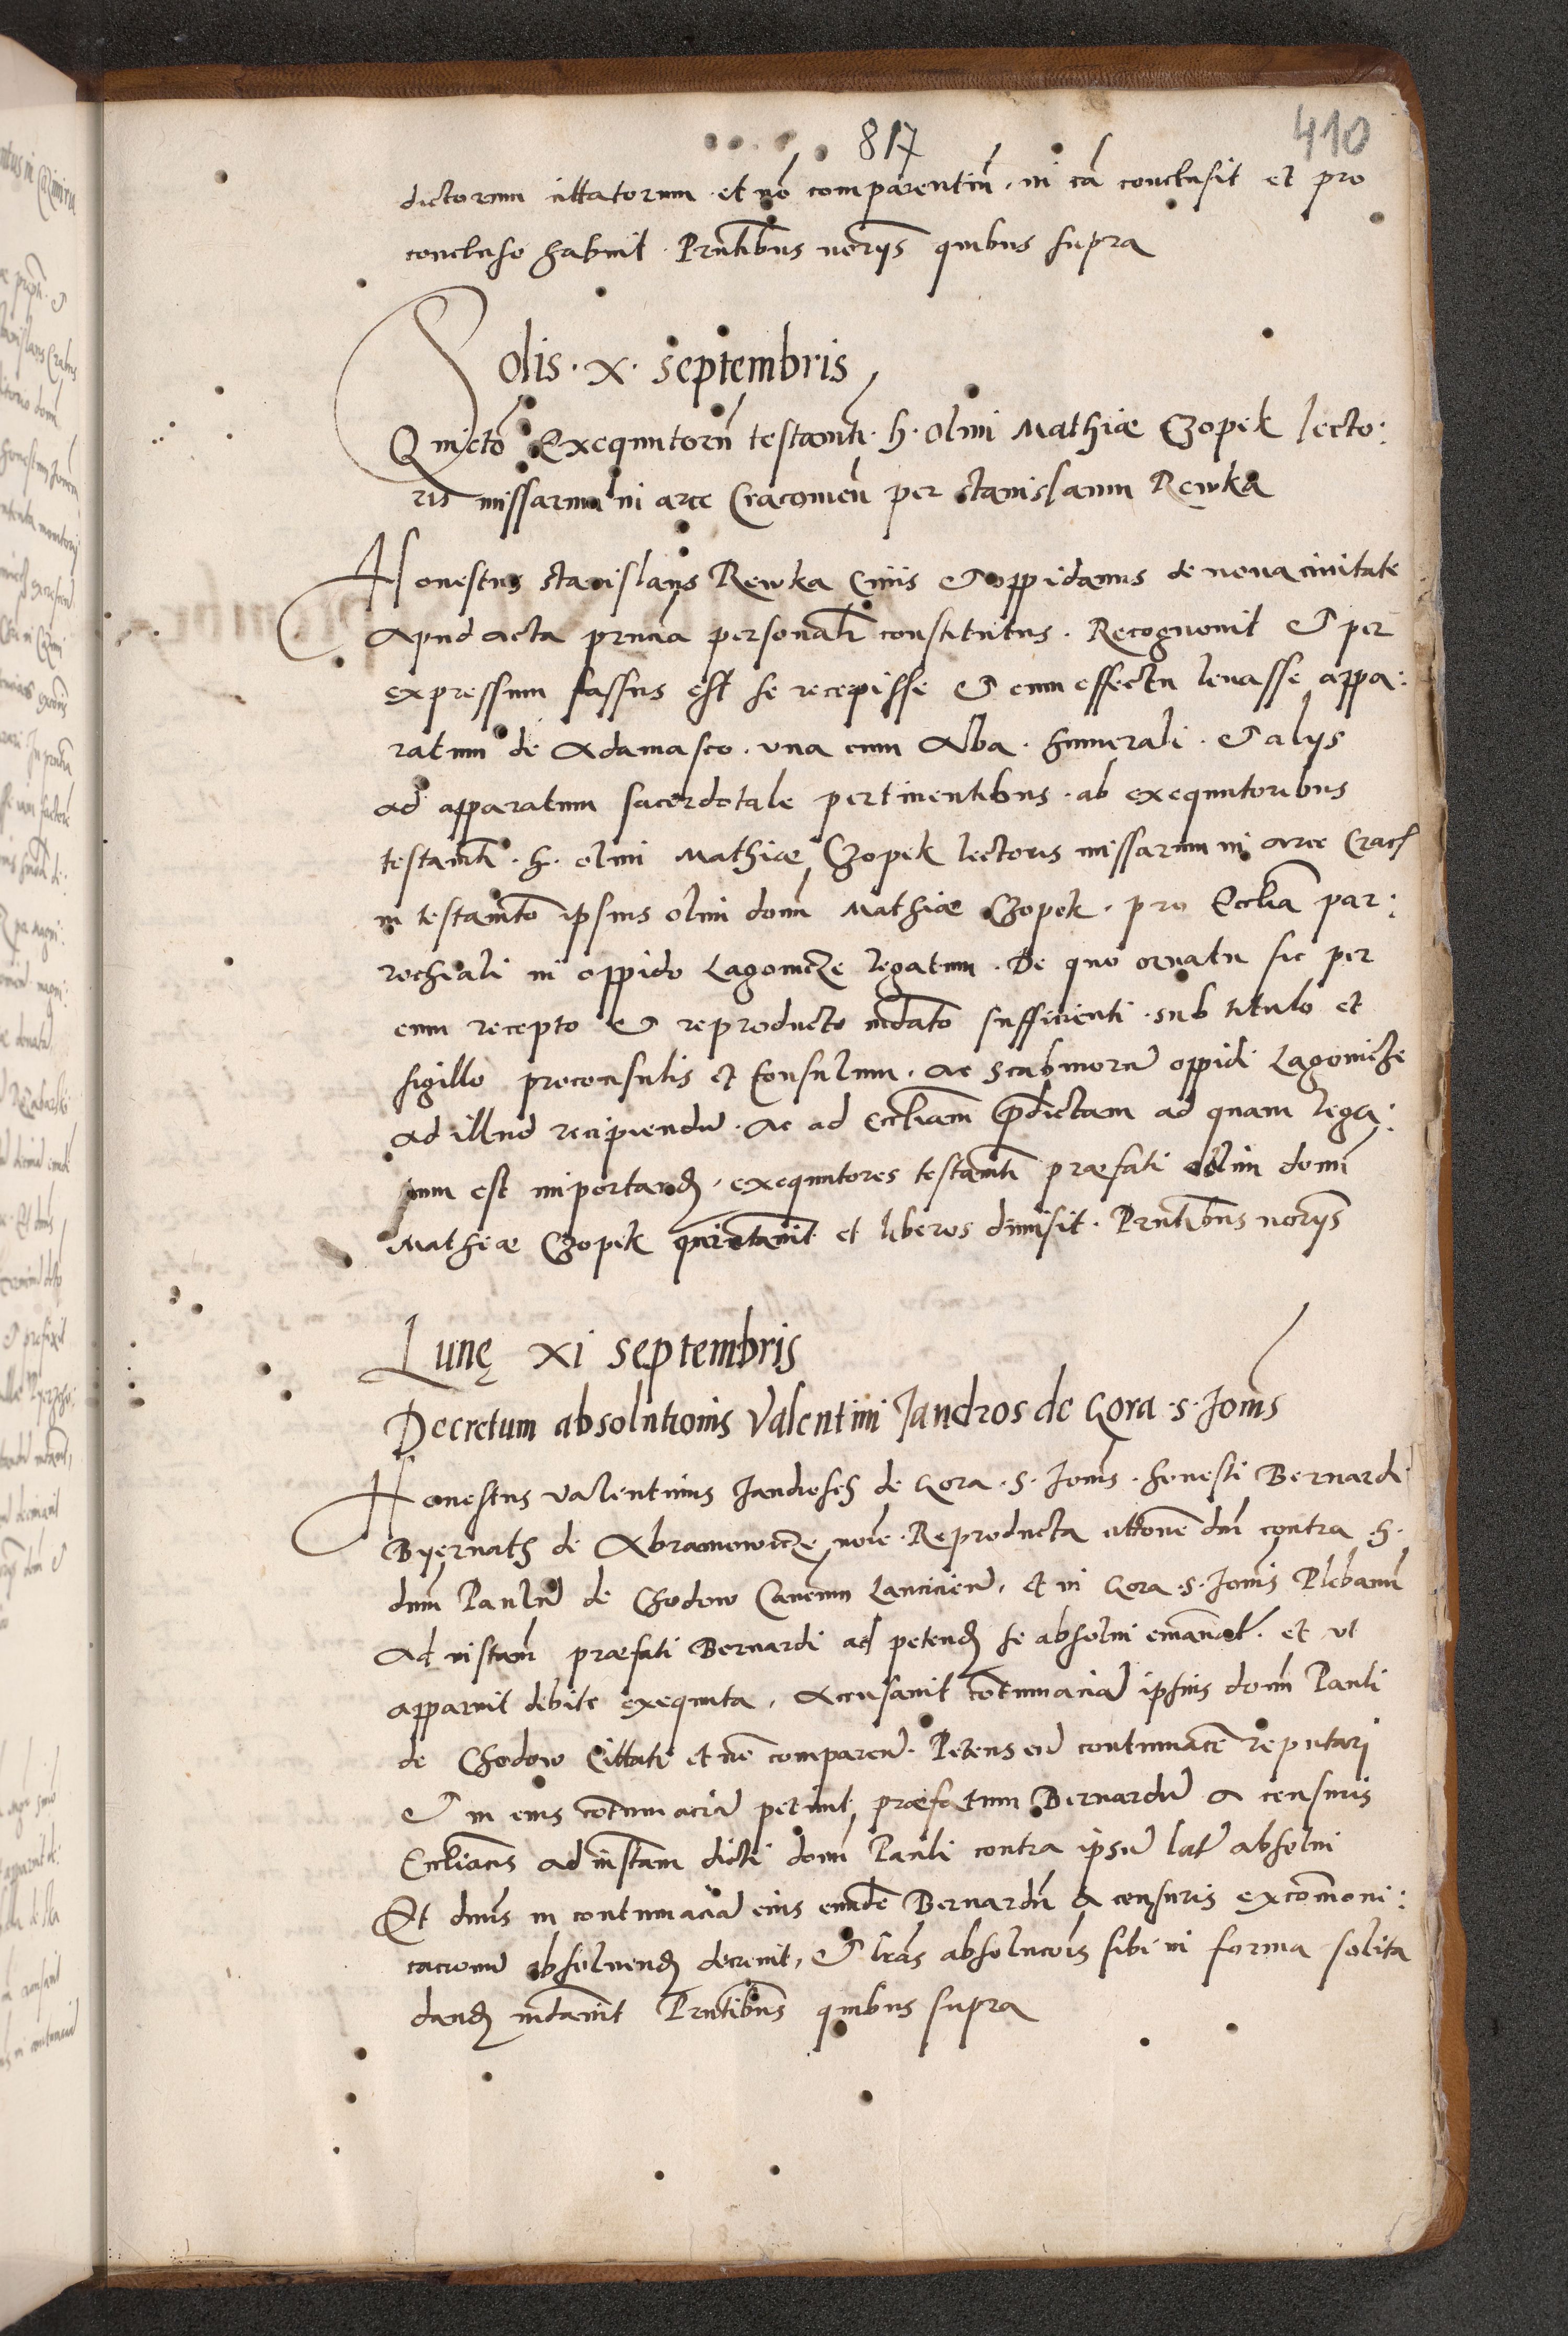 817
410
dictorum cittatorum · et nō comparentiū · in cā conclusit et pro
concluso habuit · Prntibus noryis quibus supra
Solis · x · septembris
Quietō Exequutorū testamti · h · olim Mathiæ Czopek lecto:
ris missarum in arce Cracouieñ per Stanislaum Rewka
Honestus Stanislaus Rewka Ciuis & oppidanus de noua ciuitate
Apud acta prntia personalr constitutus · Recognouit & per
expressum fassus est se recepisse & cum effectu leuasse appa:
ratum de Adamasco · vna cum Alba · humerali · & alijs
ad apparatum sacerdotale pertinentibus · ab exequutoribus
testamti · h · olim Mathiæ Czopek lectoris missarum in arce Crac
in testamto ipsius olim domi Mathiæ Czopek · pro Ecclia par:
rochiali in oppido Lagowicze legatum · De quo ornatu sic per
eum recepto & reproducto mdato sufficienti · sub titulo et
sigillo proconsulis et Consulum · ac Scabinorū oppidi Lagowicze
ad illud recipiendū · ac ad Eccliam p̄dictam ad quam lega:
tum est importand · exequutores testamti præfati olim domi
Mathiæ Czopek quietauit et liberos dimisit · Prntibus noryis
Lunę xi septembris
Decretum absolutionis Valentini Jandros de Gora · s · Joñis
Honestus Valentinus Jandrosch de Gora · S · Joñis · honesti Bernardi
Byernath de Abramowicze noīe · Reproducta cittone dni contra h ·
dnum Paulū de Chodow Canonm Lanciciēn · et in Gora · S · Joñis Plebanū
Ad instam præfati Bernardi ad petend se absolui emanat · et vt
apparuit debite exequuta · Accusauit cotumaciā ipsius domi Pauli
de Chodow Cittati et nō comparen · Petens eū contumacē reputari
& in eius cotumaciā petiuit præfatum Bernardū a censuris
Eccliacis ad instam dicti domi Pauli contra ipsū lat absolui
Et dnus in contumaciā eius eundē Bernardū a censuris excomoni:
cacionū absoluend decreuit, & lras absolucois sibi in forma solita
dand mdauit Prntibus quibus supra